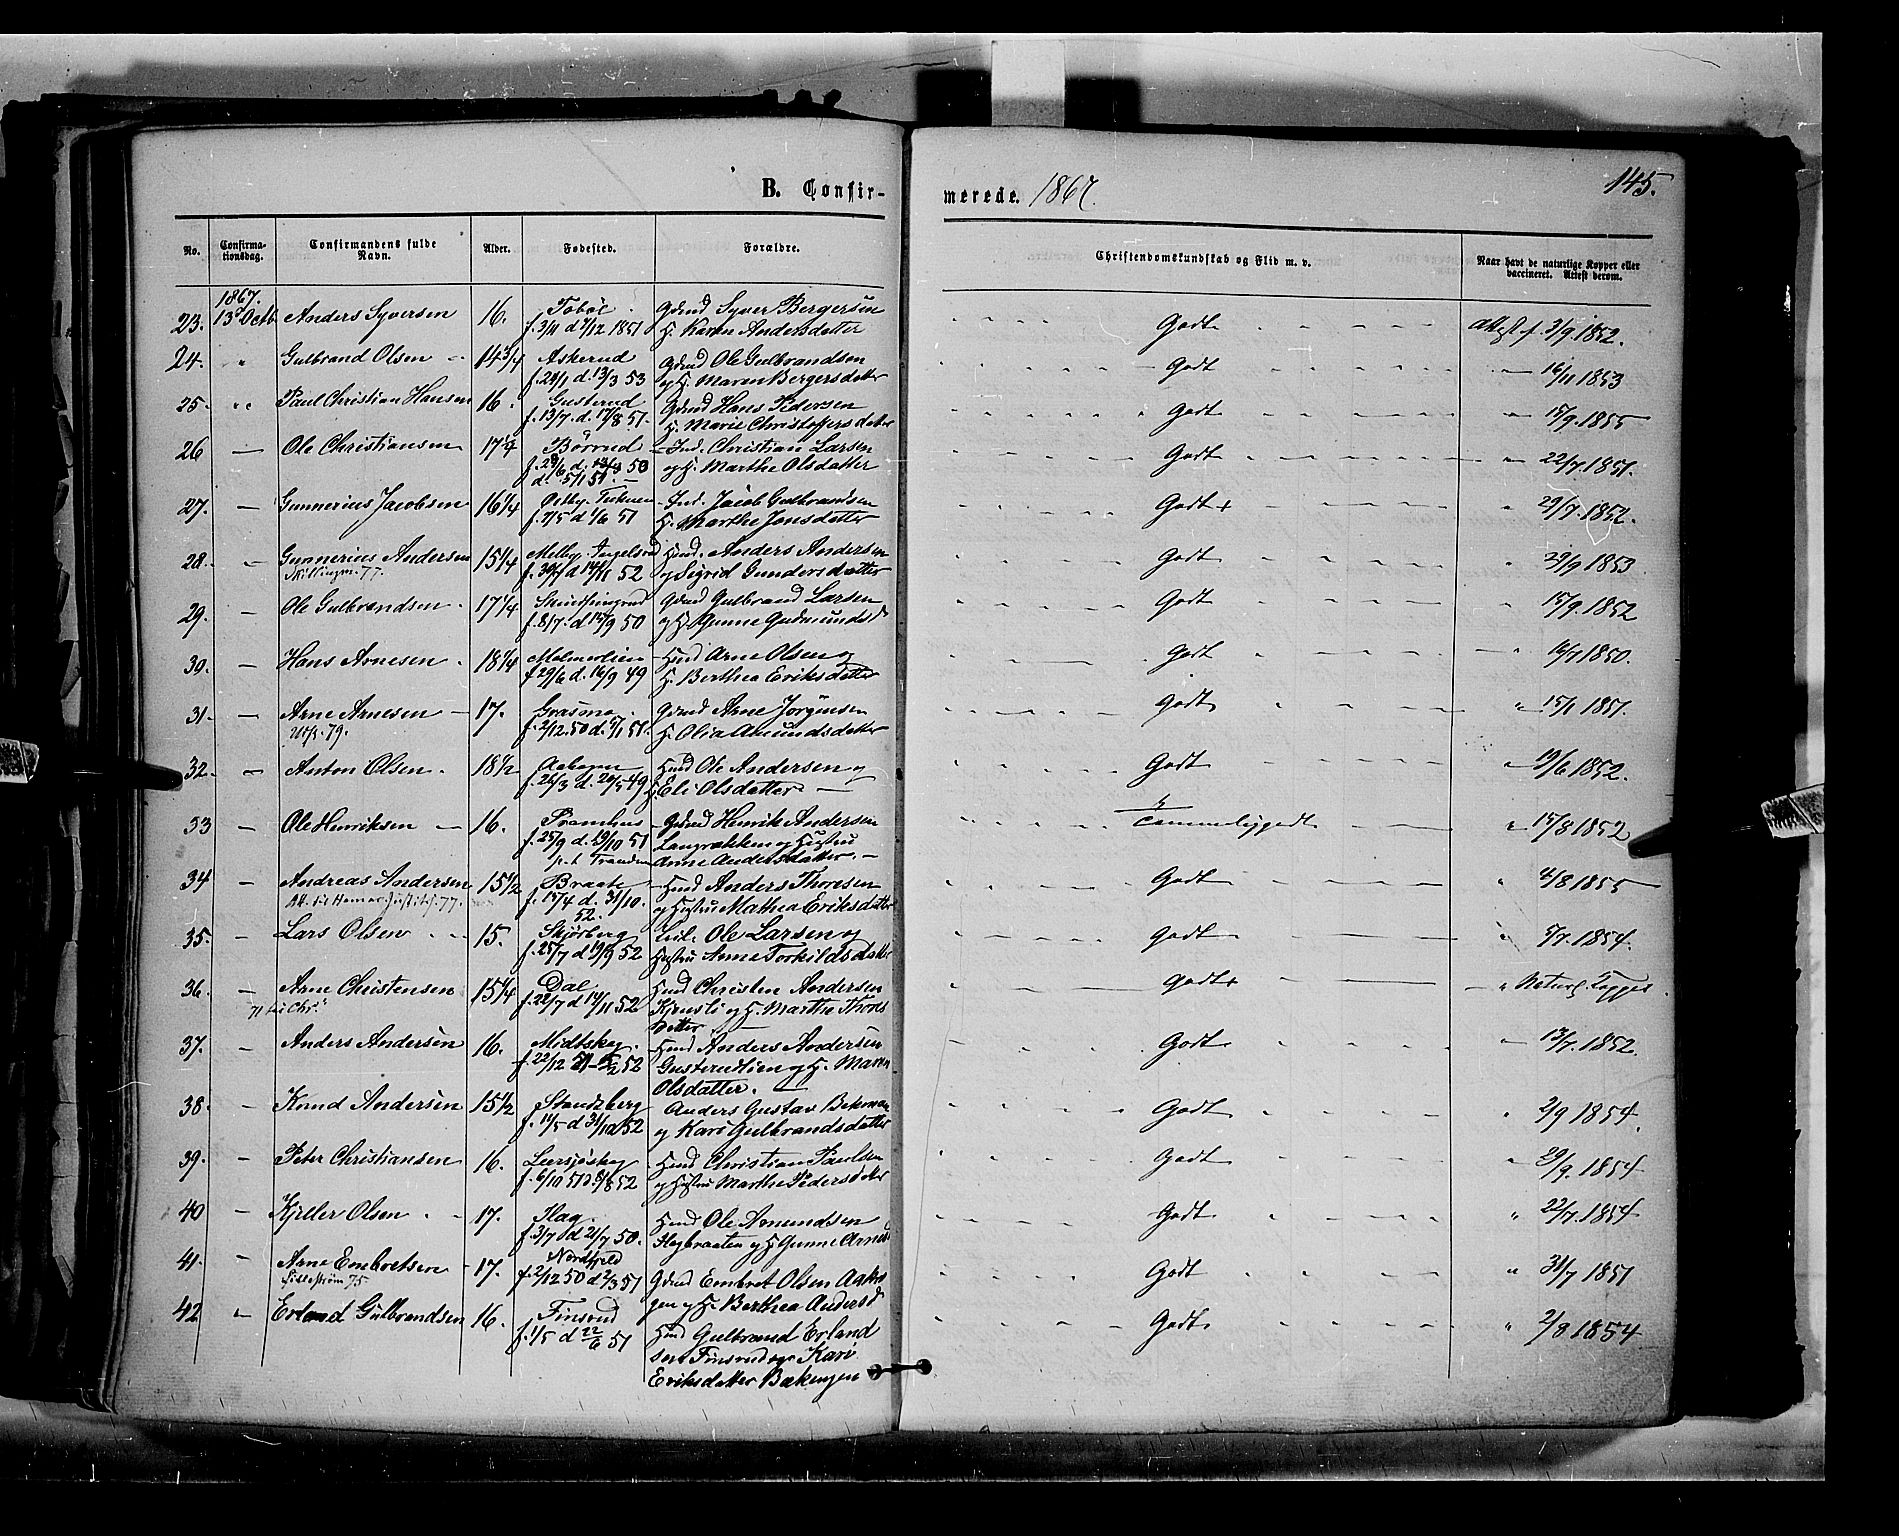 B. Confir-
merede. 1867.
145.
No. Confirma-tionsdag. Confirmandens fulde Navn. Alder. Fødested. Forældre. Christendomskundskab og Flid m. v. Naar havt de naturlige Kopper eller vaccineret. Attest derom.
1867.
23. 13 Octb Anders Syversen 16. Tobøl. Gdmd Syver Bergersen Godt Attest f. 3/9. 1852.
f. 3/11 d 7/12 1851 H. Karen Andersdatter
24. " Gulbrand Olsen 14 3/4 Askerud Gdmd Ole Gulbrandsen Godt 16/11 1853
f. 24/1 d. 13/3 53 og H. Maren Bergersdatter
25. " Paul Christian Hansen 16. Gusterud Gdmd Hans Pedersen Godt 15/9. 1855
f. 13/7. d. 17/8 51. H. Marie Christoffersdatter
26 — Ole Christiansen 17 1/4 Børrud Ind. Christian Larsen Godt 22/7. 1851.
f. 29/6 d. 50 og H. Marthe Olsdatter
d. 5/1 51. —
27. — Gunnerius Jacobsen 16 1/4 Østby Ind. Jacob Gulbrandsen Godt + 29/7. 1852.
f. 7/5 d 1/6 51 H. Marthe Jonsdatter
28. — Gunnerius Andersen 15 1/4 Melby Hmd. Anders Andersen Godt 29/9 1853
77. f. 30/7 d 14/11 52 og Sigrid Gundersdatter
29. — Ole Gulbrandsen 17 1/4 Gdmd Gulbrand Larsen Godt 15/9. 1852
f. 8/7. d 15/9 50 og H. Gunne Gudmundsd
30. — Hans Arnesen 18 1/4 Malmerlien Hmd Arne Olsen og Godt 1850.
f 29/6 d. 16/9 49 H. Berthea Eriksdatter
31. — Arne Arnesen 17. Grasmo Gdmd Arne Jørgensen Godt 15/1 1851.
79. f. 2/12. 50 d. 51. H. Olia Amundsdatter
32. — Anton Olsen. 18 1/2 Aabogen Hmd Ole Andersen og Godt 19/6 1852.
f. 26/3 d. 20/5 49 H. Eli Olsdatter —
33 — Ole Henriksen 16. Framhus Gdmd Henrik Andersen Temmeliggodt 15/8 1852
f. 25/9 d. 19/10 51 Langrækken og Hustru
Anne Andersdatter. —
34 — Andreas Andersen 15 1/2 Braate Hmd Anders Thoresen Godt 4/8 1855
Att. til Hamar 77. f. 15/4 d. 31/10. og Hustru Mathea Eriksdatter
52.
35. — Lars Olsen 15. Skjørberg Ole Larsen og Godt 5/7. 1854.
f. 25/7 d 19/9 52 Hustru Anne Torkildsdatter
36. — Arne Christensen 15 1/4 Dal Hmd Christen Andersen Godt + Naturl. Kopper
71 til Chr. f. 22/7 d 14/11 52 Kjensli og H. Marthe Thores
datter —
37. — Anders Andersen 16. Midtskog. Hmd Anders Andersen Godt 13/7. 1852.
f. 22/12 51 - 52 Gusterudlien og H. Maren
Olsdatter. —
38. — Knud Andersen 15 1/2 Strandsberg Anders Gustav Bekman Godt 2/9 1854.
f. 11/5 d 31/10 52 og Kari Gulbrandsdatter
39. — Peter Christiansen 16. Leersjøskog Hmd Christian Paulsen Godt 29/9. 1854
f. 6/10 51 d. 52 og Hustru Marthe Pedersdatter
40 — Kjeller Olsen 17. Flag. Hmd Ole Amundsen Godt 22/7. 1854
f. 3/7 d 21/7 50. Flagbraaten og H. Gunne Arnesd
41. — Arne Embretsen 17. Nordhveld Gdmd Embret Olsen Aabo Godt 31/7 1851
Lillestrøm 75 f. 2/12 50 d 2/3 51 gen og H. Berthea Andersd
42 " Erland Gulbrandsen 16. Finsrud Hmd Gulbrand Erland Godt 2/8 1854
f. 1/5 d 22/6 51 sen Finsrud og Kari
Eriksdatter Bækengen